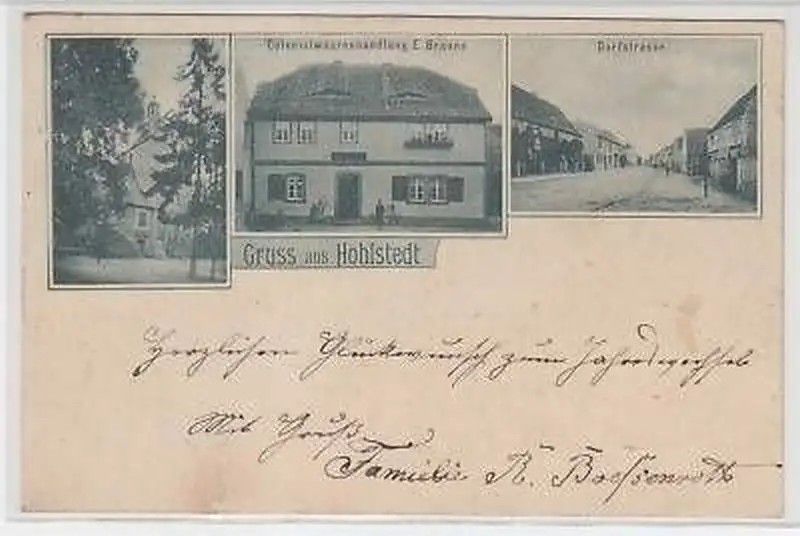 Colonialwaarenhandlung E. Braune
Dorfstrasse
Gruss aus Hohlstedt
Herzlichen Glückwunsch zum Jahreswechsel
Mit Gruß
Familie R.